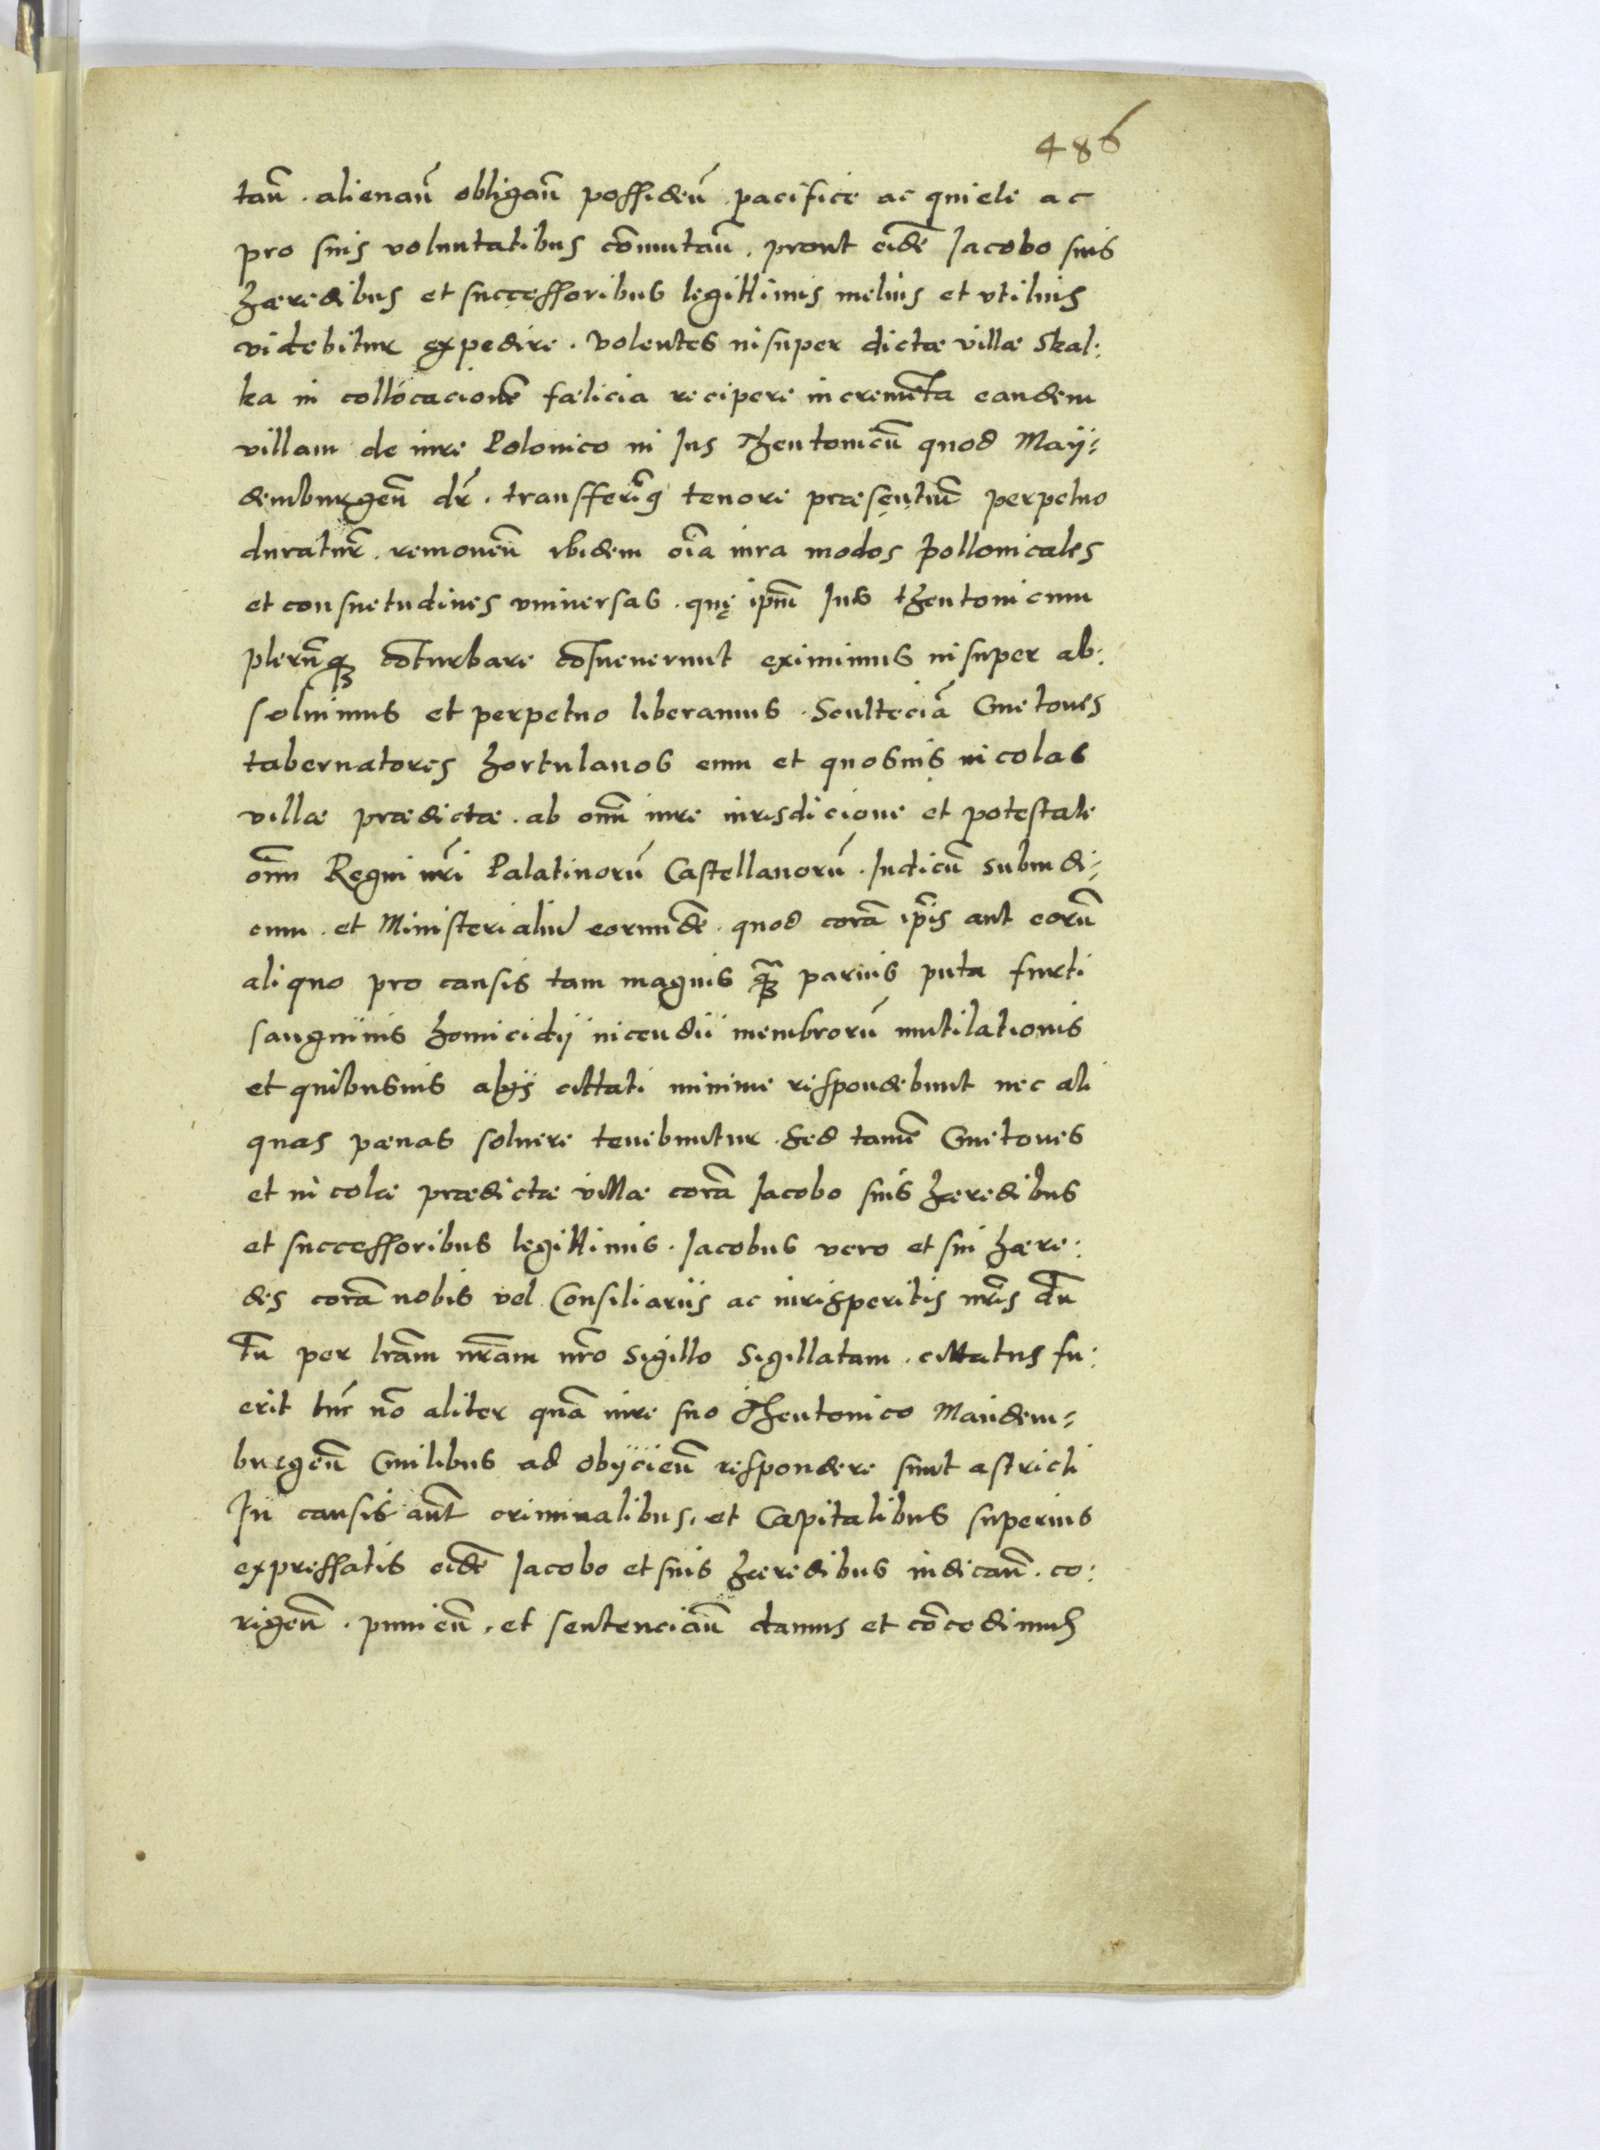 486
tan̄. alienan̄ obligan̄ possiden̄. pacifice ac quiete ac
pro suis voluntatibus com̄utan̄. prout eidē Iacobo suis
hæredibus et successoribus legittimis melius et vtilius
videbitur expedire. Volentes insuper dictæ villæ Skal:
ka in collocacionē fælicia recipere incremēta eandem
villam de iure Polonico in Ius Theutonicū quod Maÿ:
demburgen̄ dr̄. transferim9 tenore præsentiū perpetuo
duratur̄. remouen̄ ibidem oīa iura modos Pollonicales
et consuetudines vniuersas. quę ipm̄ Ius theutonicum
plerūq3 cōturbare cōsueuerunt eximimus insuper ab:
soluimus et perpetuo liberamus. Scultеciā Cmetones
tabernatores hortulanos cum et quosuis incolas
villæ prædictæ. ab omī iure iurisdicione et potestate
oīm Regni nr̄i Palatinorū Castellanorū. Iudicū subiudi:
cum. et Ministerialiū eorumdē. quod corā ip̄is aut eorū
aliquo pro causis tam magnis q̄3 paruis puta furti
sanguinis homicidÿ incendiï membrorū mutilationis
et quibusuis alÿs cittati minime respondebunt nec ali
quas pænas soluere tenebuntur. Sed tamē Cmetones
et incolæ prædictæ villæ corā Iacobo suis hæredibus
et successoribus legittimis. Iacobus vero et sui hære:
des corā nobis vel Consiliariis ac iurisperitis nr̄is dū
tū per lr̄am nr̄am nr̄o Sigillo Sigillatam. cittatus fu:
erit tūc nō aliter quā iure suo Theutonico Maidem:
burgen̄ Ciuilibus ad obÿcien̄ respondere sint astricti
In causis aūt criminalibus, et Capitalibus superius
expressatis eidē Iacobo et suis hæredibus iudican̄. co:
rigen̄. punien̄, et sentencian̄ damus et cōcedimus